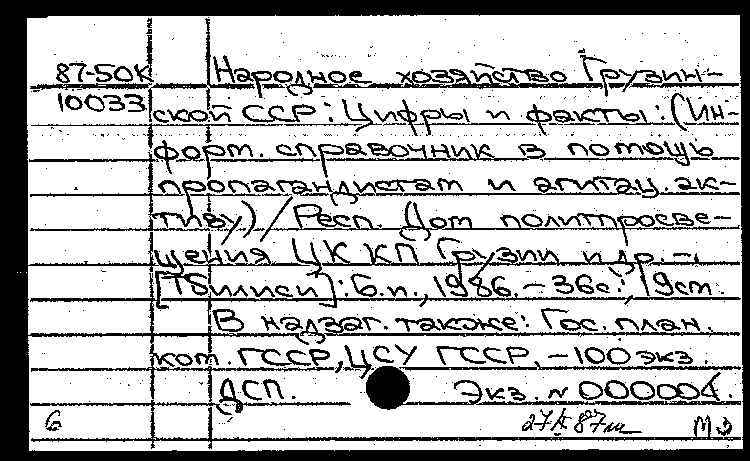 87-50К Народное хозяйство Грузин-
10033 ской ССР: Цифры и факты: (Ин-
форм. справочник в помощь
пропагандистам и агитац. ак-
тиву) / Респ. Дом политпросве-
щения ЦК КП Грузии и др. -
[Тбилиси]: Б.и., 1986. - 36с.; 19см.
В надзаг. также: Гос. план.
ком. ГССР, ЦСУ ГССР. - 100 экз.
ДСП. Экз. № 000004.
6 87 МЭ